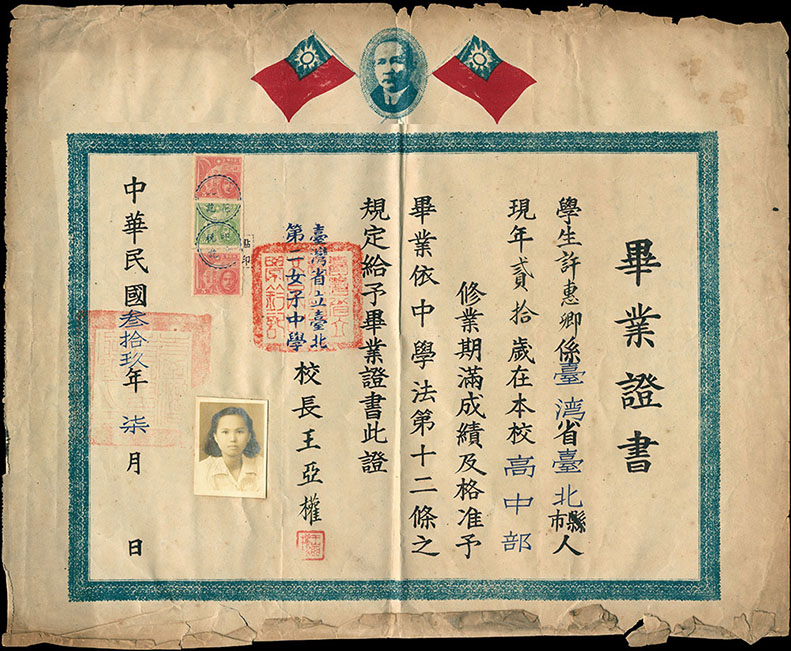 畢業證書
學生許惠卿係臺湾省臺北縣市人
現年貳拾歲在本校高中部
修業期滿成績及格准予
畢業依中學法第十二條之
規定給予畢業證書此證
臺灣省立臺北
第二女子中學
校長王亞權
貼印
中華民國叁拾玖年柒月 日